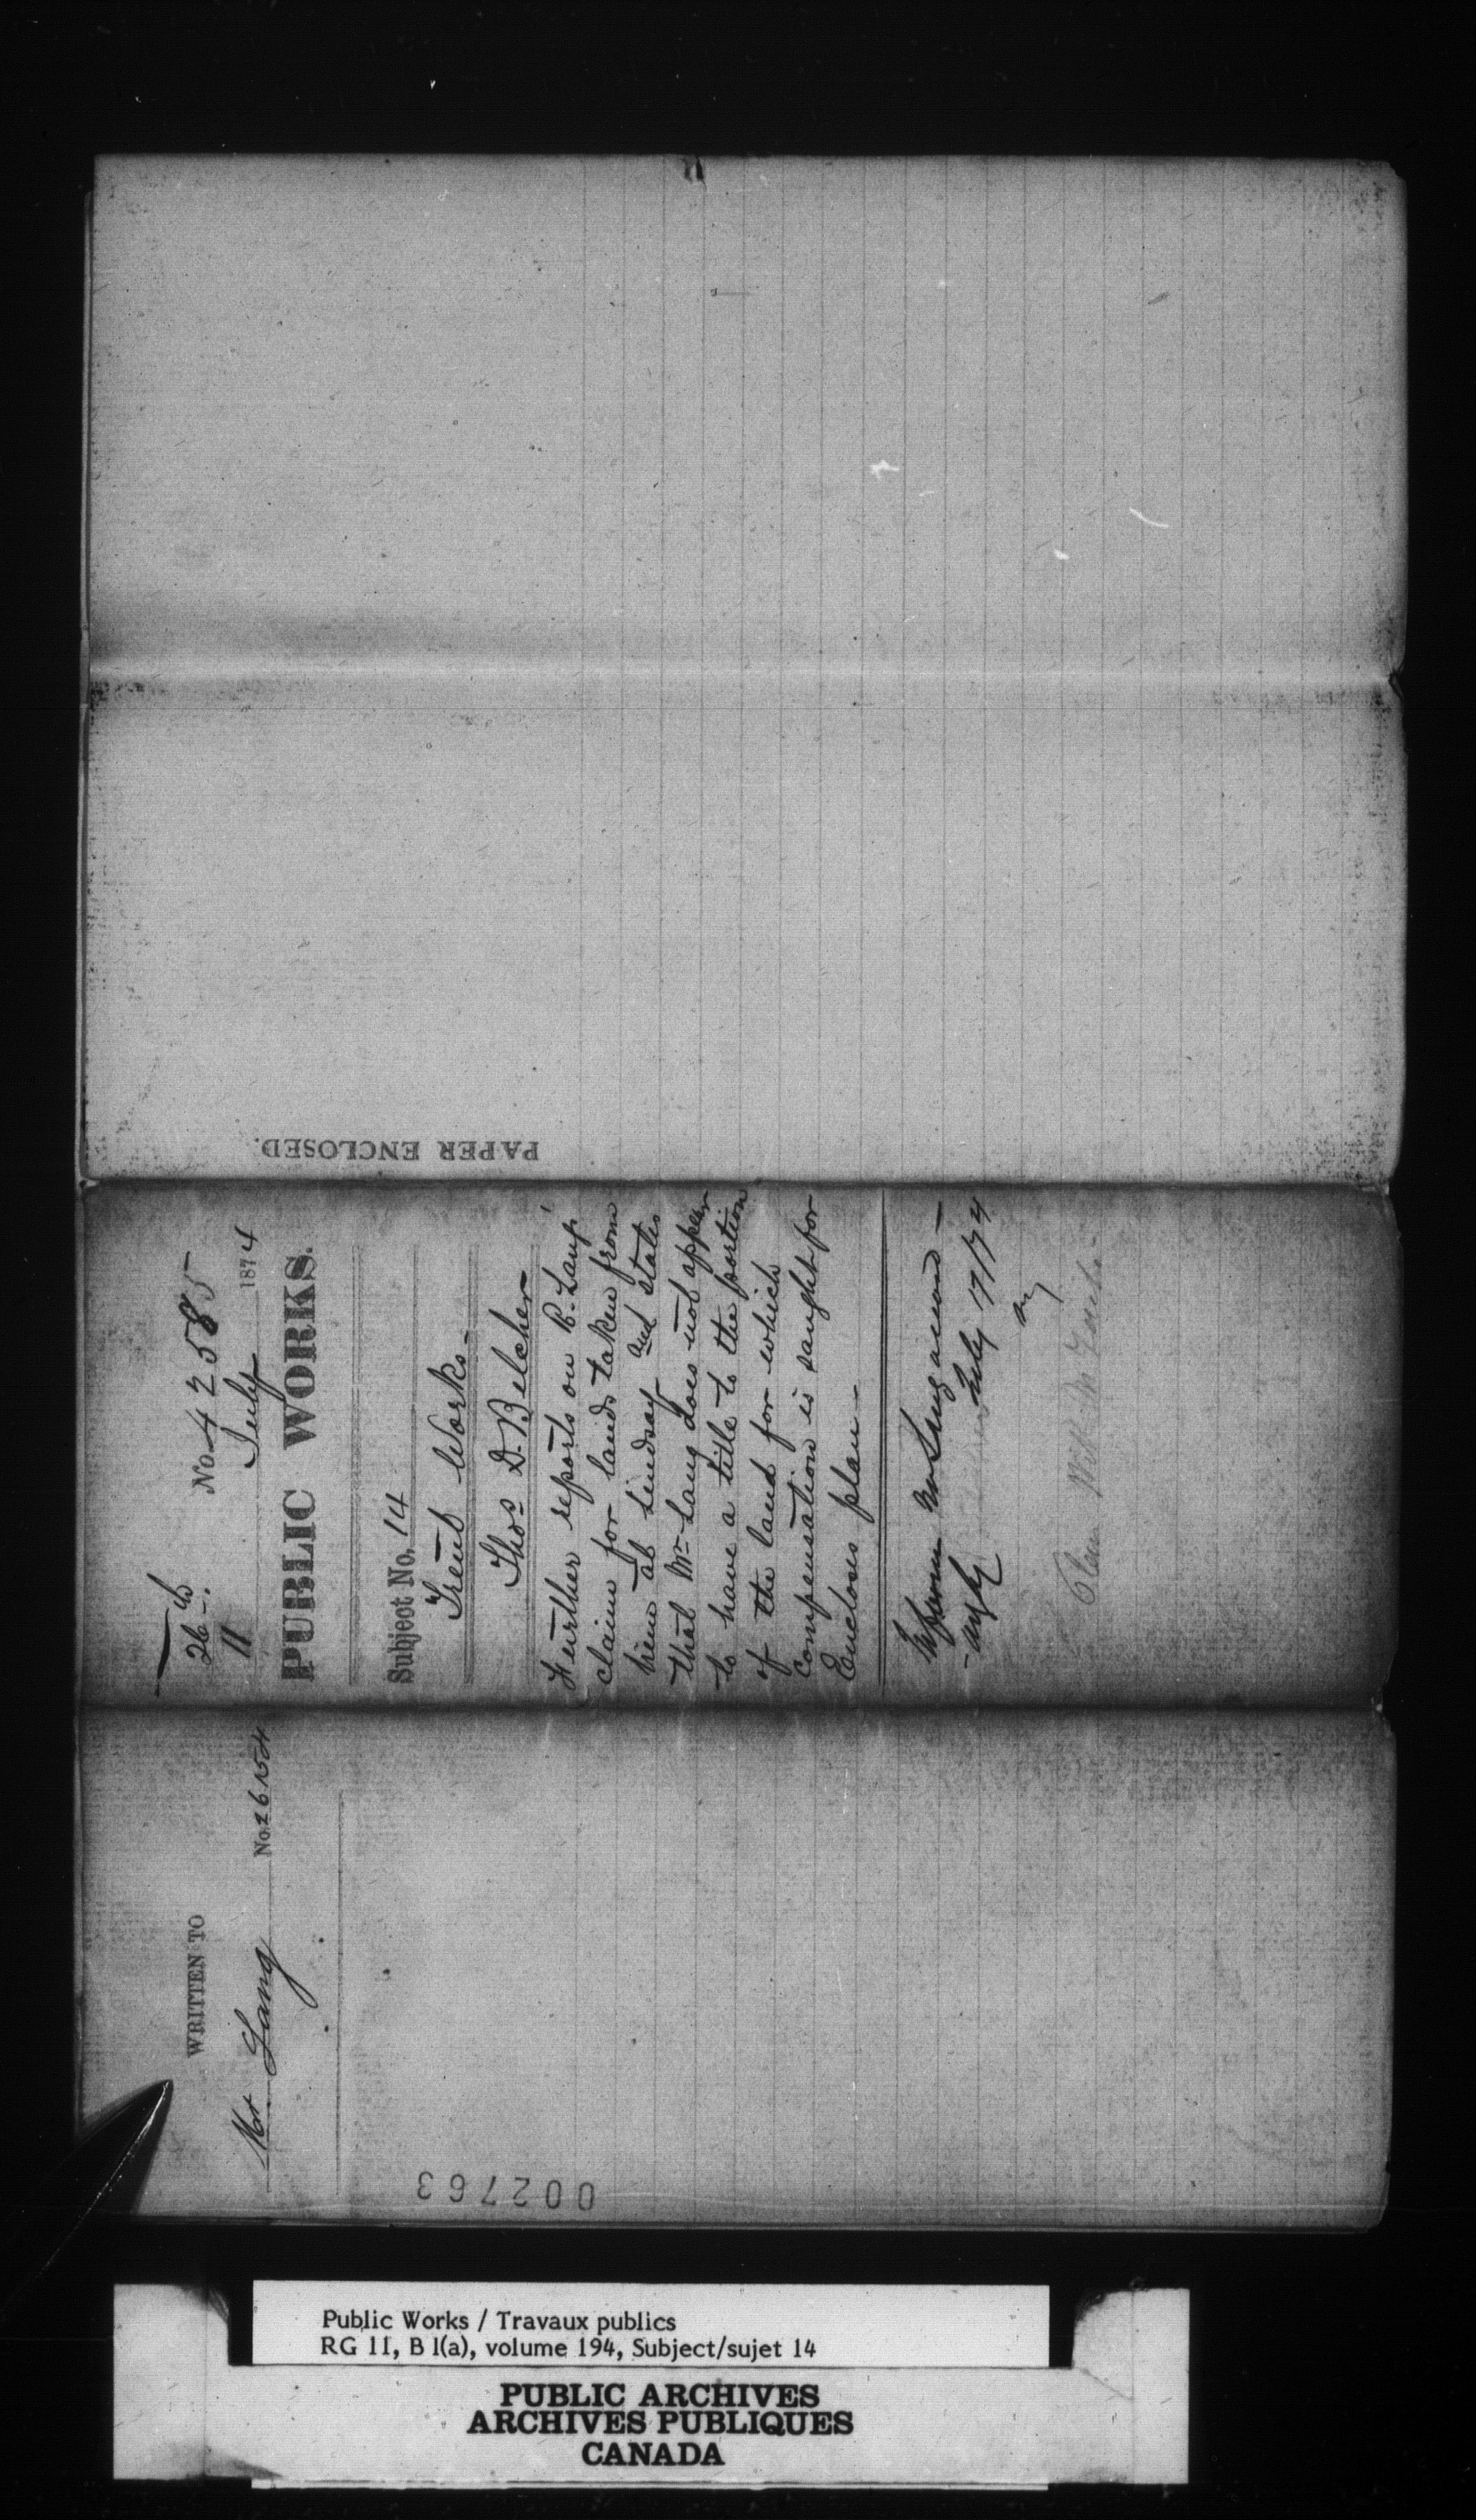 PAPER ENCLOSED.
26th
11
No 42585
July 1874
PUBLIC WORKS.
Subject No. 14
Trent Works-
Thos D. Belcher
Further reports on R. Lang's
claim for lands taken from
him at Lindsay and states
that Mr Lang does not appear
to have a title to the portion
of the land for which
compensation is saught for
Encloses plan-
Inform Mr Lang
July 17/74
WRITTEN TO
Mr Lang No. 26154
002763
Public Works / Travaux publics
RG 11, B 1(a), volume 194, Subject/sujet 14
PUBLIC ARCHIVES
ARCHIVES PUBLIQUES
CANADA